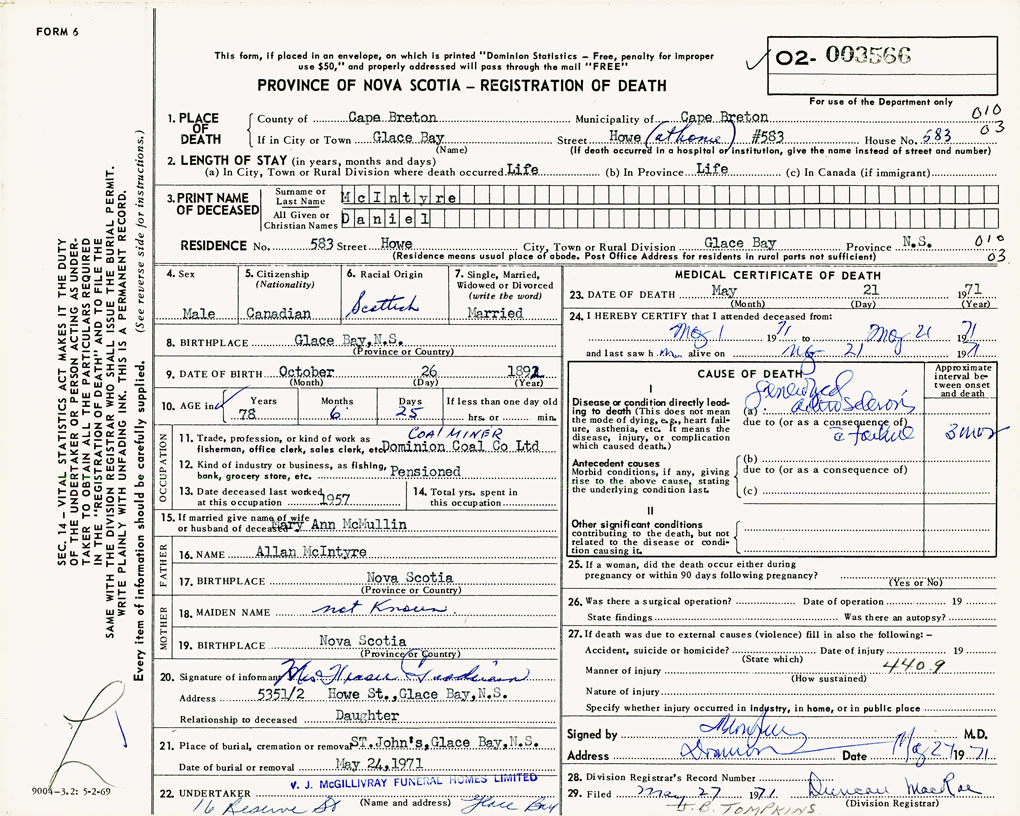 FORM 6
O2- 003566
This form, if placed in an envelope, on which is printed "Dominion Statistics – Free, penalty for improper
use $50," and properly addressed will pass through the mail "FREE"
PROVINCE OF NOVA SCOTIA – REGISTRATION OF DEATH
For use of the Department only
010
03
1. PLACE OF DEATH
County of Cape Breton Municipality of Cape Breton
If in City or Town Glace Bay Street Howe (at home) #583 House No. 583
(Name) (If death occurred in a hospital or institution, give the name instead of street and number)
2. LENGTH OF STAY (in years, months and days)
(a) In City, Town or Rural Division where death occurred Life (b) In Province Life (c) In Canada (if immigrant)
3. PRINT NAME OF DECEASED
Surname or Last Name McIntyre
All Given or Christian Names Daniel
RESIDENCE No. 583 Street Howe City, Town or Rural Division Glace Bay Province N.S. 010
(Residence means usual place of abode. Post Office Address for residents in rural parts not sufficient) 03
4. Sex
Male
5. Citizenship
(Nationality)
Canadian
6. Racial Origin
Scottish
7. Single, Married,
Widowed or Divorced
(write the word)
Married
8. BIRTHPLACE Glace Bay,N.S.
(Province or Country)
9. DATE OF BIRTH October 26 1892
(Month) (Day) (Year)
10. AGE in
Years Months Days If less than one day old
78 6 25 hrs. or min.
OCCUPATION
COAL MINER
11. Trade, profession, or kind of work as
fisherman, office clerk, sales clerk, etc. Dominion Coal Co Ltd
12. Kind of industry or business, as fishing,
bank, grocery store, etc. Pensioned
13. Date deceased last worked
at this occupation 1957
14. Total yrs. spent in
this occupation
15. If married give name of wife
or husband of deceased Mary Ann McMullin
FATHER
16. NAME Allan McIntyre
17. BIRTHPLACE Nova Scotia
(Province or Country)
MOTHER
18. MAIDEN NAME not Known
19. BIRTHPLACE Nova Scotia
(Province or Country)
20. Signature of informant Mrs Fraser
Address 5351/2 Howe St.,Glace Bay,N.S.
Relationship to deceased Daughter
21. Place of burial, cremation or removal ST.John's,Glace Bay,N.S.
Date of burial or removal May 24,1971
V. J. McGILLIVRAY FUNERAL HOMES LIMITED
22. UNDERTAKER
(Name and address)
16 Reserve St Glace Bay
MEDICAL CERTIFICATE OF DEATH
23. DATE OF DEATH May 21 1971
(Month) (Day) (Year)
24. I HEREBY CERTIFY that I attended deceased from:
May 1 1971 to May 21 1971
and last saw him alive on May 21 1971
CAUSE OF DEATH
Approximate interval between onset and death
I
Disease or condition directly leading to death (This does not mean the mode of dying, e.g., heart failure, asthenia, etc. It means the disease, injury, or complication which caused death.)
(a) generalized
due to (or as a consequence of)
3 mos
Antecedent causes
Morbid conditions, if any, giving rise to the above cause, stating the underlying condition last.
(b)
due to (or as a consequence of)
(c)
II
Other significant conditions
contributing to the death, but not related to the disease or condition causing it.
25. If a woman, did the death occur either during
pregnancy or within 90 days following pregnancy?
(Yes or No)
26. Was there a surgical operation? Date of operation 19
State findings Was there an autopsy?
27. If death was due to external causes (violence) fill in also the following: –
Accident, suicide or homicide? Date of injury 19
(State which)
Manner of injury 4409
(How sustained)
Nature of injury
Specify whether injury occurred in industry, in home, or in public place
Signed by M.D.
Address Dominion Date May 27 1971
28. Division Registrar's Record Number
29. Filed May 27 1971 Duncan MacRae
J.B. TOMPKINS (Division Registrar)
SEC. 14 – VITAL STATISTICS ACT MAKES IT THE DUTY
OF THE UNDERTAKER OR PERSON ACTING AS UNDER-
TAKER TO OBTAIN ALL THE PARTICULARS REQUIRED
IN THE "REGISTRATION OF DEATH" AND TO FILE THE
SAME WITH THE DIVISION REGISTRAR WHO SHALL ISSUE THE BURIAL PERMIT.
WRITE PLAINLY WITH UNFADING INK. THIS IS A PERMANENT RECORD.
Every item of information should be carefully supplied. (See reverse side for instructions.)
9004–3.2: 5-2-69